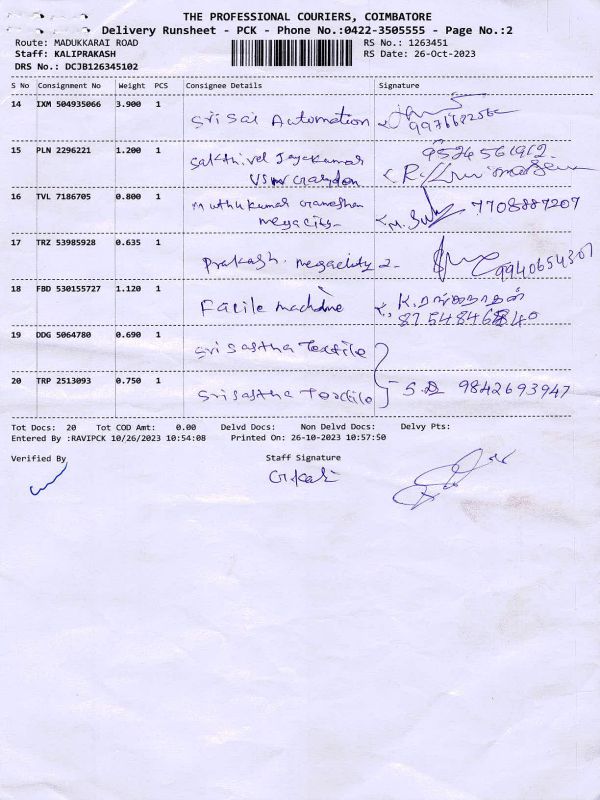 THE PROFESSIONAL COURIERS, COIMBATORE
Delivery Runsheet - PCK - Phone No.:0422-3505555 - Page No.:2
Route: MADUKKARAI ROAD RS No.: 1263451
Staff: KALIPRAKASH RS Date: 26-Oct-2023
DRS No.: DCJB126345102
S No Consignment No Weight PCS Consignee Details Signature
14 IXM 504935066 3.900 1
Sri Sai Automation
15 PLN 2296221 1.200 1 9524561912
Sakthivel Jayakumar
16 TVL 7186705 0.800 1 Muthukumar 7708887207
megacity
17 TRZ 53985928 0.635 1
Prakash. megacity 2 9940654307
18 FBD 530155727 1.120 1
Facile machine
19 DDG 5064780 0.690 1
Sri Sastha Textile
20 TRP 2513093 0.750 1
Sri Sastha Textile 9842693947
Tot Docs: 20 Tot COD Amt: 0.00 Delvd Docs: Non Delvd Docs: Delvy Pts:
Entered By :RAVIPCK 10/26/2023 10:54:08 Printed On: 26-10-2023 10:57:50
Verified By Staff Signature